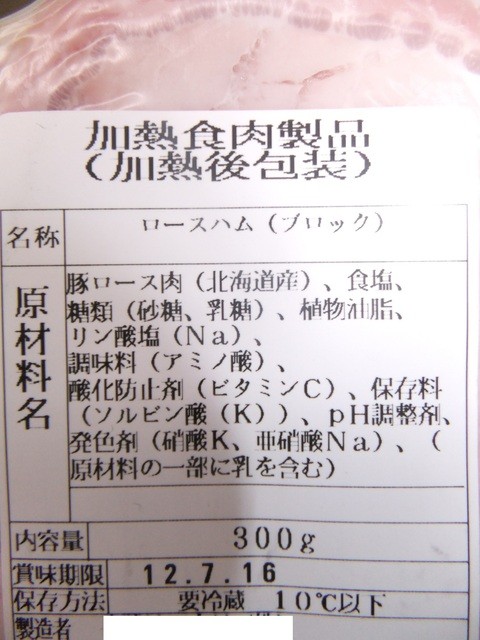 加熱食肉製品
（加熱後包装）
名称 ロースハム（ブロック）
原材料名
豚ロース肉（北海道産）、食塩、
糖類（砂糖、乳糖）、植物油脂、
リン酸塩（Ｎａ）、
調味料（アミノ酸）、
酸化防止剤（ビタミンＣ）、保存料
（ソルビン酸（Ｋ））、ｐＨ調整剤、
発色剤（硝酸Ｋ、亜硝酸Ｎａ）、（
原材料の一部に乳を含む）
内容量 300g
賞味期限 12.7.16
保存方法 要冷蔵 10℃以下
製造者